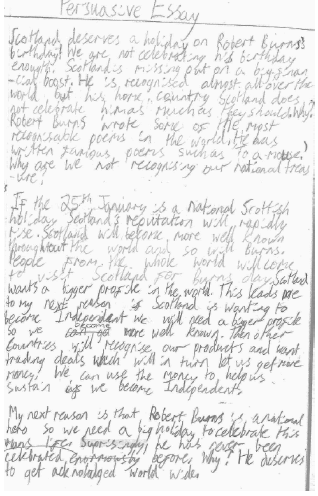 Persuasive Essay
Scotland deserves a holiday on Robert Burns's
birthday! We are not celebrating his birthday
enough. Scotland is missing out on a big finan
-cial boost. He is recognised almost all over the
world but his home country Scotland does
not celebrate him as much as they should. Why?
Robert Burns wrote some of the most
recognisable poems in the world. He has
written famous poems such as to a mouse,
Why are we not recognising our national treas
-ure!
If the 25th January is a national Scottish
holiday Scotland's reputation will rapidly
rise. Scotland will become more well known
throughout the world and so will Burns.
People from the whole world will come
to visit Scotland for Burns day. Scotland
wants a bigger profile in the world. This leads me
to my next reason if Scotland is wanting to
become Independent we will need a bigger profile
so we become more well known. Then other
Countries will recognise our products and want
trading deals which will in turn let us get more
money! We can use the money to help us
sustain if we become Independents
My next reason is that Robert Burns is a national
hero so we need a big holiday to celebrate this
mans life. Suprisingly, he has never been
celebrated enormously before, Why? He deserves
to get acknolaged world wide.